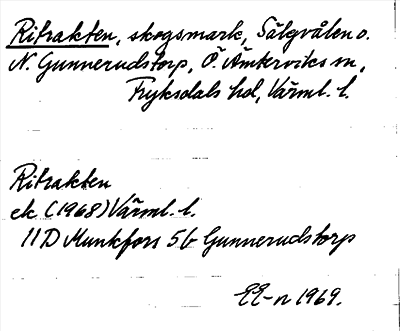 Ritrakten, skogsmark, Sälgvålen o.
N. Gunnerudstorp, Ö. Ämterviks sn,
Fryksdals hd, Värml. l.
Ritrakten
ek. (1968) Värml. l.
11D Munkfors 5b Gunnerudstorp
EE-n 1969.